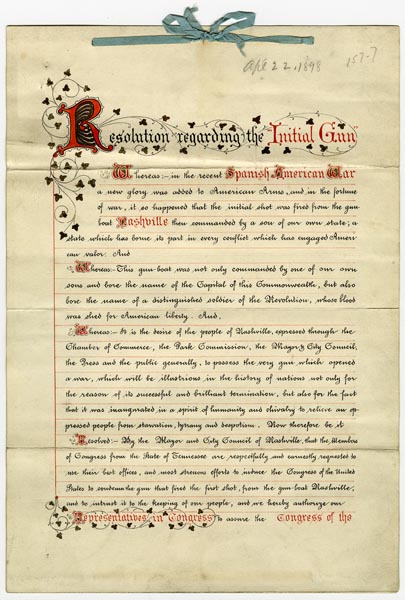 Apl 22, 1898
157-7
Resolution regarding the Initial Gun
Whereas:-, in the recent Spanish American War
a new glory was added to American Arms, and, in the fortune
of war, it so happened that the initial shot was fired from the gun-
boat Nashville then commanded by a son of our own state; a
state which has borne its part in every conflict which has engaged Ameri-
can valor. And
Whereas:- This gun-boat was not only commanded by one of our own
sons and bore the name of the Capital of this Commonwealth, but also
bore the name of a distinguished soldier of the Revolution, whose blood
was shed for American liberty. And,
Whereas:- It is the desire of the people of Nashville, expressed through the
Chamber of Commerce, the Park Commission, the Mayor & City Council,
the Press and the public generally, to possess the very gun which opened
a war, which will be illustrious in the history of nations, not only for
the reason of its successful and brilliant termination, but also for the fact
that it was inaugurated in a spirit of humanity and chivalry to relieve an op-
pressed people from starvation, tyrany and despotism. Now therefore be it
Resolved:- By the Mayor and City Council of Nashville, that the Members
of Congress from the State of Tennessee are respectfully and earnestly requested to
use their best offices, and most strenous efforts to induce the Congress of the United
States to condemn the gun that fired the first shot, from the gun-boat Nashville,
and to intrust it to the keeping of our people, and we hereby authorize our
Representatives in Congress to assure the Congress of the